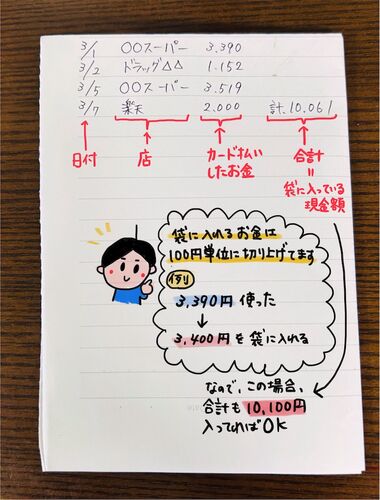 3/1 〇〇スーパー 3.390
3/2 ドラッグ△△ 1.152
3/5 〇〇スーパー 3.519
3/7 楽天 2.000 計.10.061
日付 店 カード払いしたお金 合計
=
袋に入っている
現金額
袋に入れるお金は
100円単位に切り上げてます
例
3,390円 使った
↓
3,400円を袋に入れる
なので、この場合、
合計も10,100円
入ってればOK